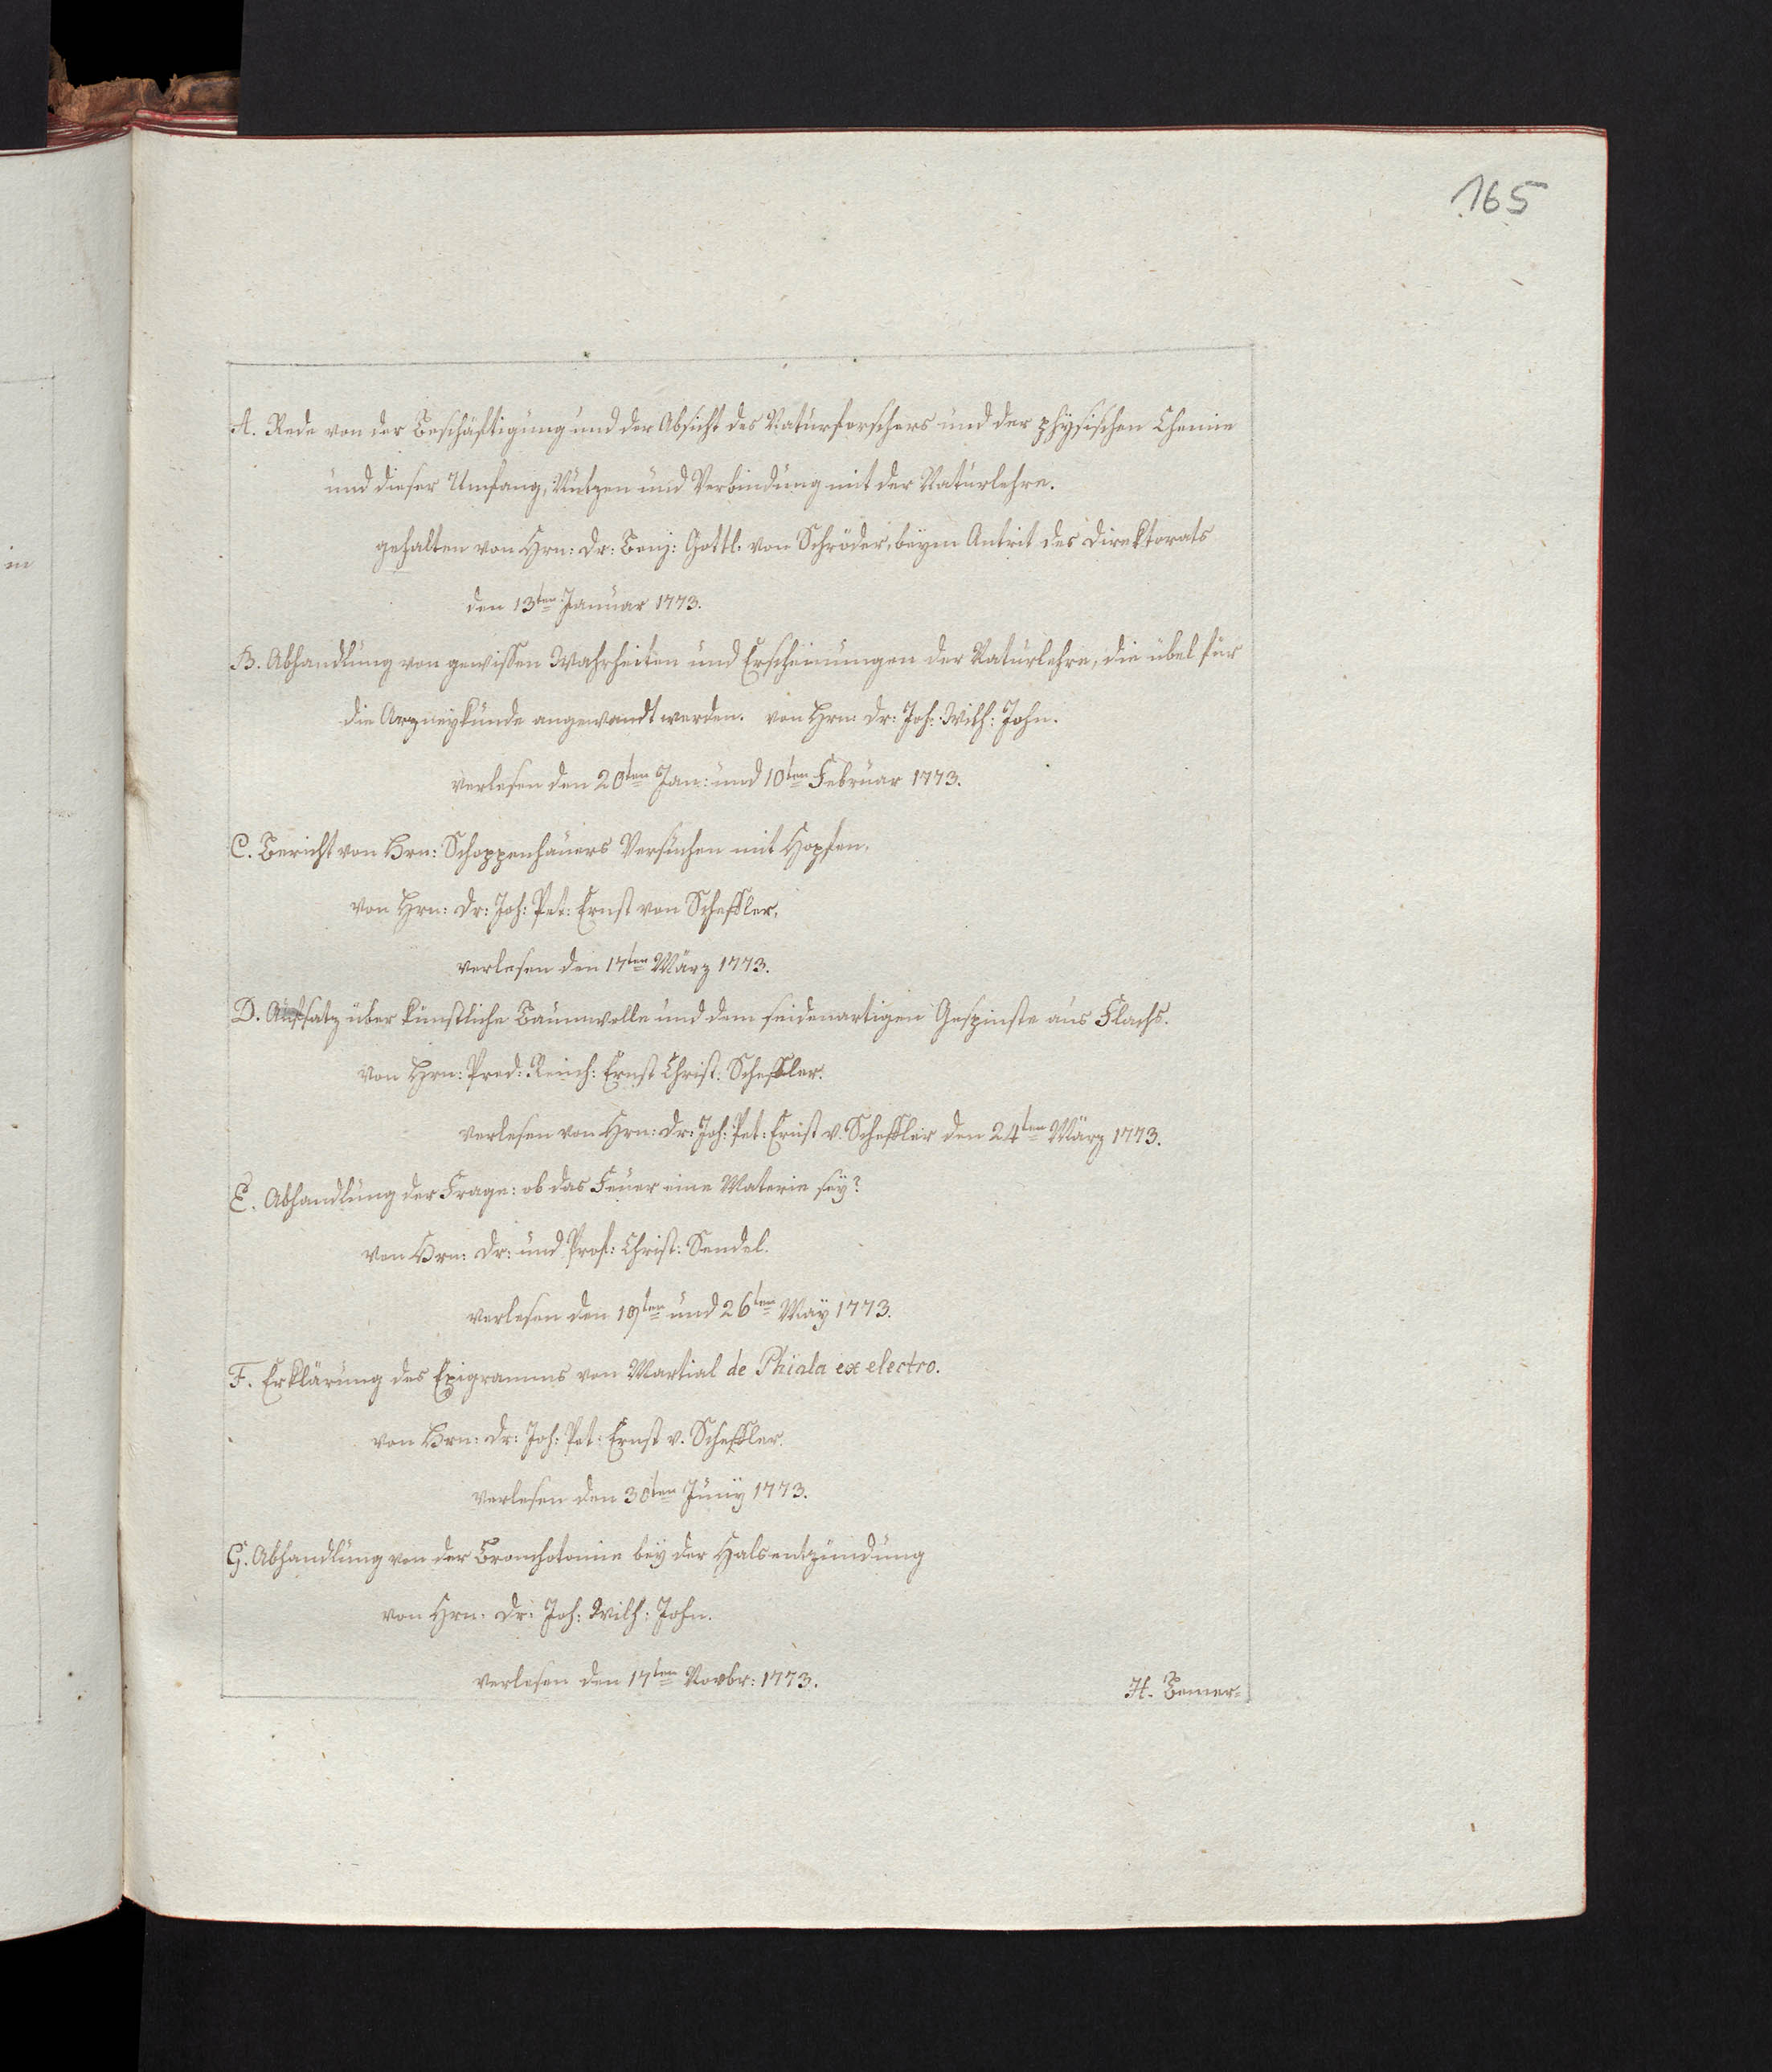 165
in
A. Rede von der Beschäftigung und der Absicht des Naturforschers und der physischen Chemie
und dieser Umfang, Nutzen und Verbindung mit der Naturlehre.
gehalten von Hrn: Dr: Benj: Gottl: von Schröder, beym Antrit des Direktorats
den 13ten Januar 1773.
B. Abhandlung von gewissen Wahrheiten und Erscheinungen der Naturlehre, die übel für
die Arzneykunde angewandt werden. von Hrn: Dr: Joh: Wilh: John.
verlesen den 20ten Jan: und 10ten Februar 1773.
C. Bericht von Hrn: Schoppenhauers Versuchen mit Hopfen,
von Hrn: Dr: Joh: Pet: Ernst von Scheffler,
verlesen den 17ten März 1773.
D. Aufsatz über künstliche Baumwolle und dem seidenartigen Gespinste aus Flachs.
von Hrn: Pred: Reinh: Ernst Christ: Scheffler.
verlesen von Hrn: Dr: Joh: Pet: Ernst v. Scheffler den 24ten März 1773.
E. Abhandlung der Frage: ob das Feuer eine Materie sey?
von Hrn: Dr: und Prof: Christ: Sendel.
verlesen den 19ten und 26ten May 1773.
F. Erklärung des Epigramms von Martial de Phiala ex electro.
von Hrn: Dr: Joh: Pet: Ernst v. Scheffler.
verlesen den 30ten Juny 1773.
G. Abhandlung von der Bronchotomie bey der Halsentzündung
von Hrn: Dr: Joh: Wilh: John.
verlesen den 17ten Novbr: 1773.
H. Bemer-